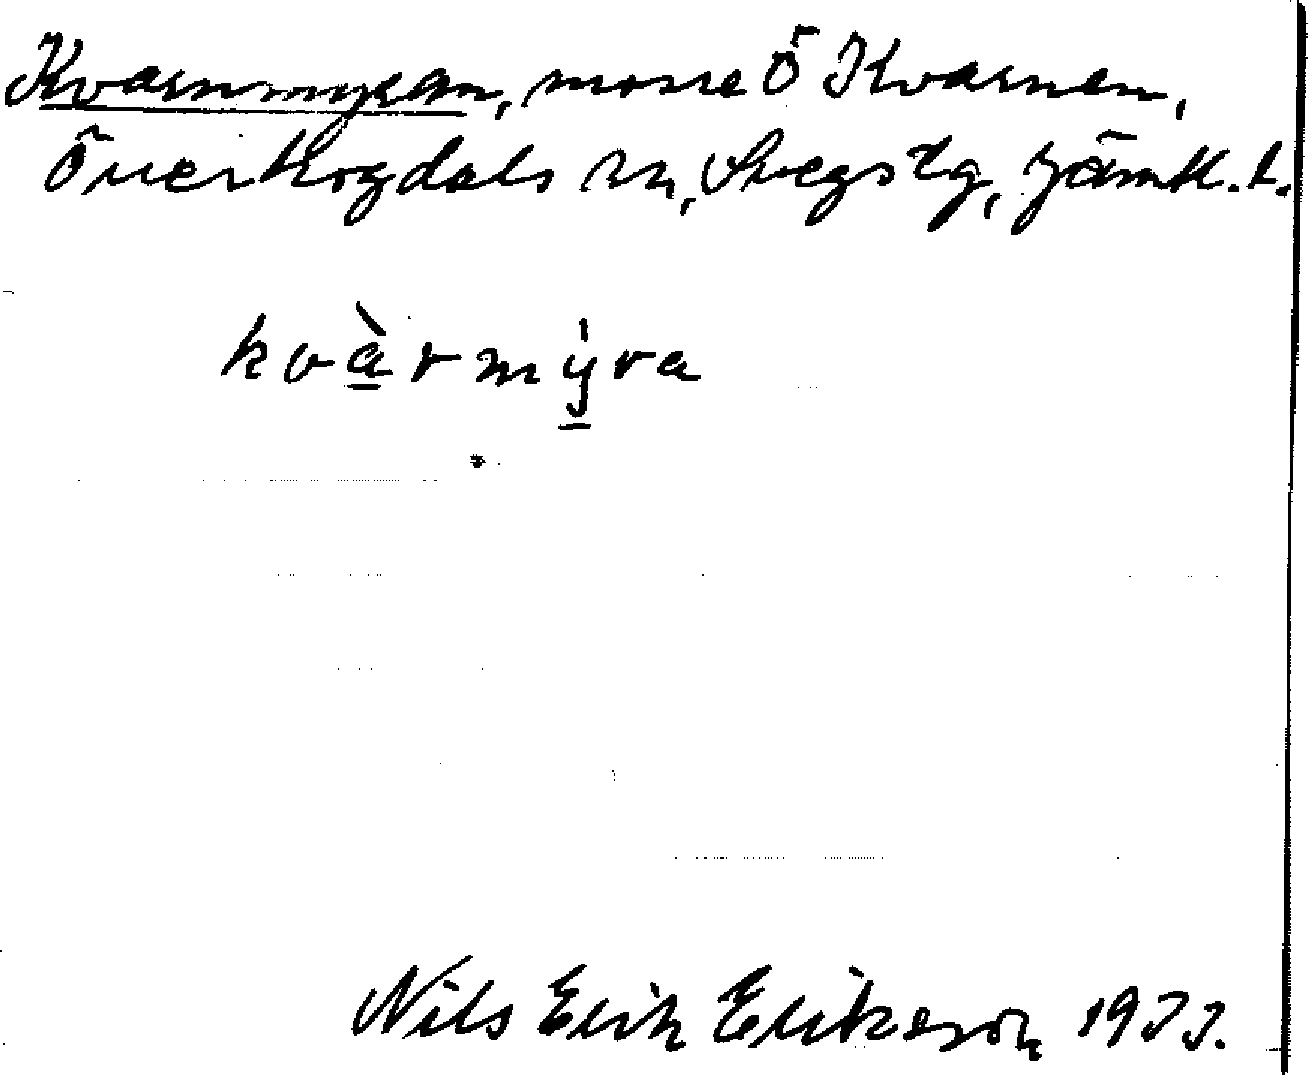 Kvarnmyran, mosse Ö Kvarnen,
Överhogdals sn, Svegs tg, Jämtl. l.
kvàrmýra
Nils Erik Erikeson 1933.